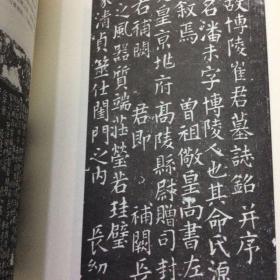 故博陵崔君墓誌銘并序
名潘未字博陵人也其命氏源
叙焉 曾祖儆皇尚書左
皇京兆府高陵縣尉贈司封
右補闕 君即 補闕長
之風器質端莊瑩若珪璧
清貞筮仕閨門之內 長幼